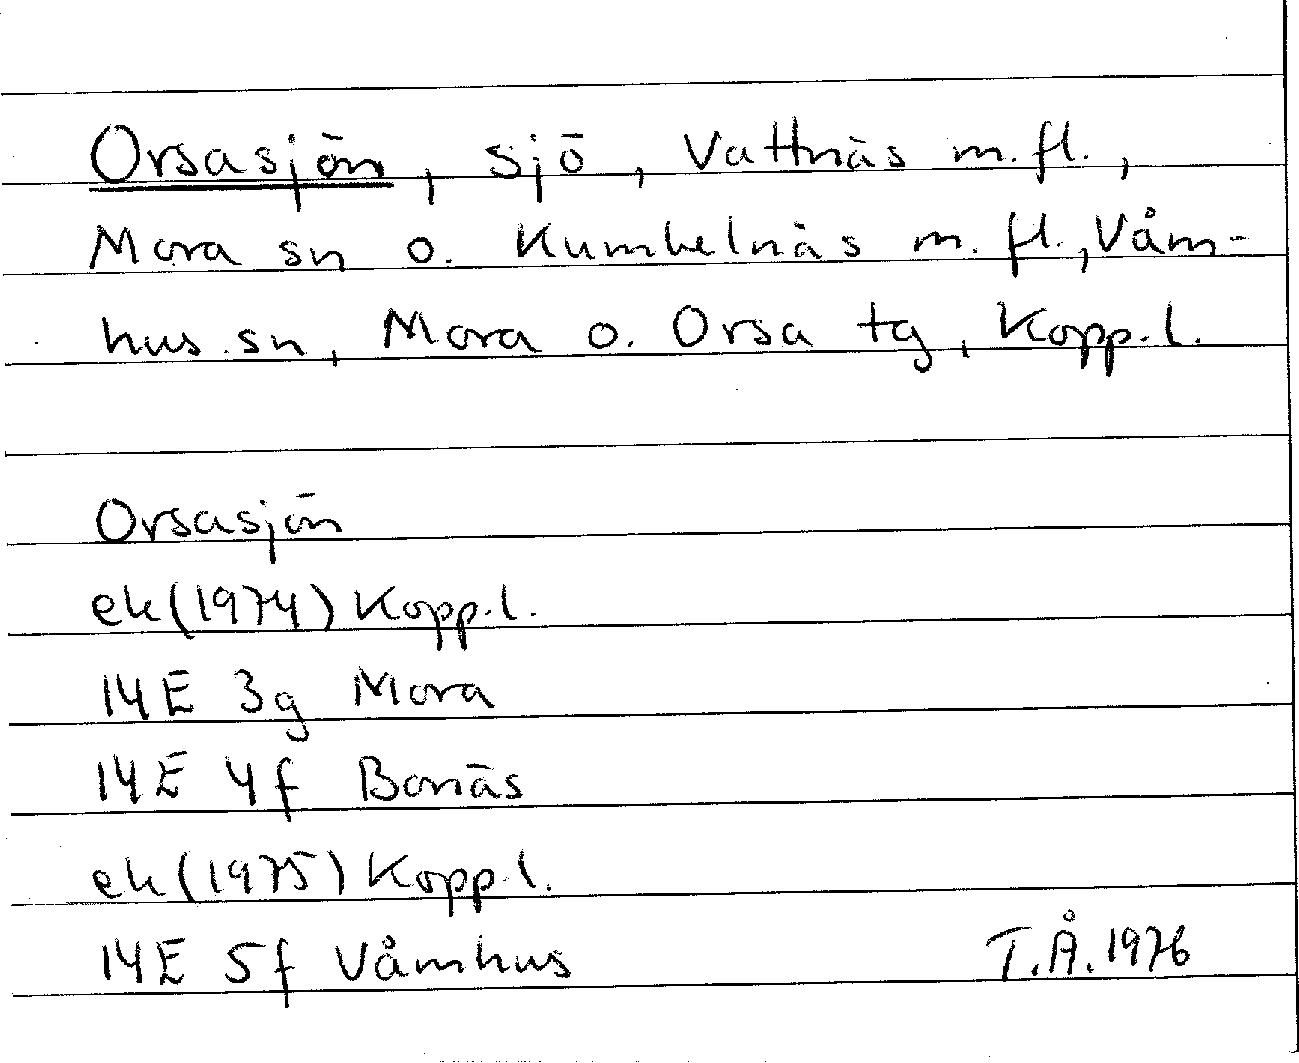 Orsasjön, sjö, Vattnäs m.fl.,
Mora sn o. Kumbelnäs m.fl., Våm-
hus sn, Mora o. Orsa tg, Kopp.l.
Orsasjön
ek(1974) Kopp.l.
14E 3g Mora
14E 4f Bonäs
ek(1975) Kopp.l.
14E 5f Våmhus
T.Å. 1976